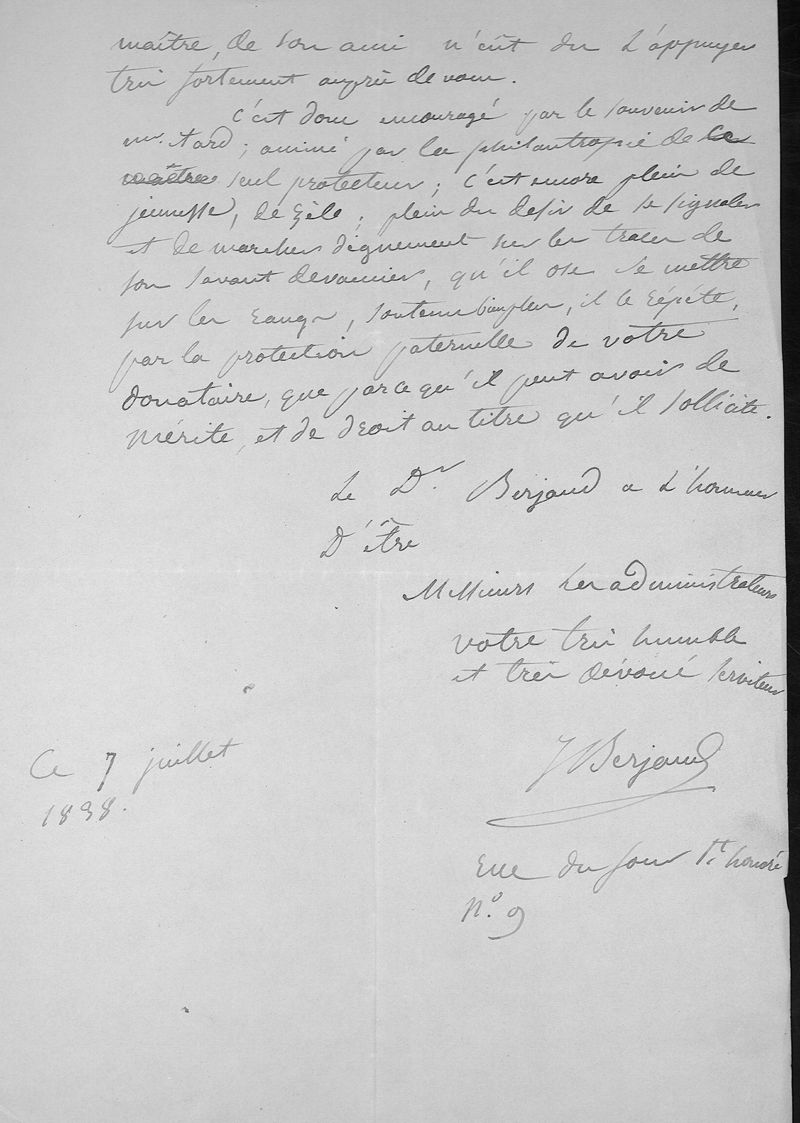 maître, de son ami n'eût du l'appuyer
très fortement auprès de vous.
C'est donc encouragé par le souvenir de
mr. itard; animé par la philantropie de ce
maître seul protecteur; c'est encore plein de
jeunesse, de zèle, plein du desir de se signaler
et de marcher dignement sur les traces de
son savant devancier, qu'il ose se mettre
sur les rangs, soutenu bien plus, il le répète,
par la protection paternelle de votre
donataire, que par ce qu'il peut avoir de
mérite, et de droit au titre qu'il sollicite.
Le Dr Berjaud a l'honneur
D'être
Messieurs les administrateurs
votre très humble
et très dévoué serviteur
J Berjaud
Ce 7 juillet
1838.
rue du four St. honoré
N.o 9